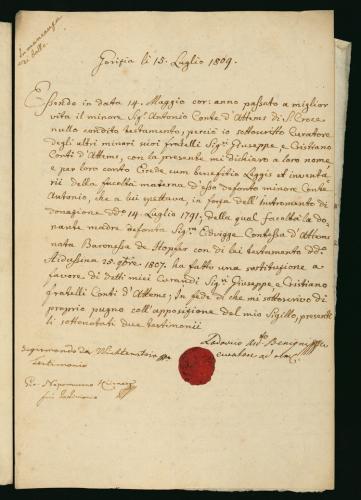 In mancanza
di bollo
Gorizia li 15. Luglio 1809.
Essendo in data 14. Maggio cor: anno passato a miglior
vita il minore Sigr Antonio Conte d'Attems di S. Croce
nullo condito testamento, perciò io sottoscritto Curatore
degli altri minori suoi fratelli Sigri Giuseppe e Cristiano
Conti d'Attems, con la presente mi dichiaro a loro nome
e per loro conto Erede cum beneficio Leggis et inventa-
rii della facoltà materna d'esso defonto minore Conte
Antonio, che a lui spettava, in forza dell'instromento di
donazione ddo 14. Luglio 1791, della qual facoltà la do-
nante madre defonta Sigra Edvigge Contessa d'Attems
nata Baronessa de con di lei testamento ddo
Aidussina 25. 1807. ha fatto una sostituzione a
favore di detti miei Curandi Sigri Giuseppe e Cristiano
fratelli Conti d'Attems. In fede di che mi sottoscrivo di
proprio pugno coll'apposizione del mio Sigillo, presenti
li sottonotati due testimonii
Lodovico Benigni
curatore ad
Sigismondo de
Testimonio
Gio. Nepomuceno
fui testimonio